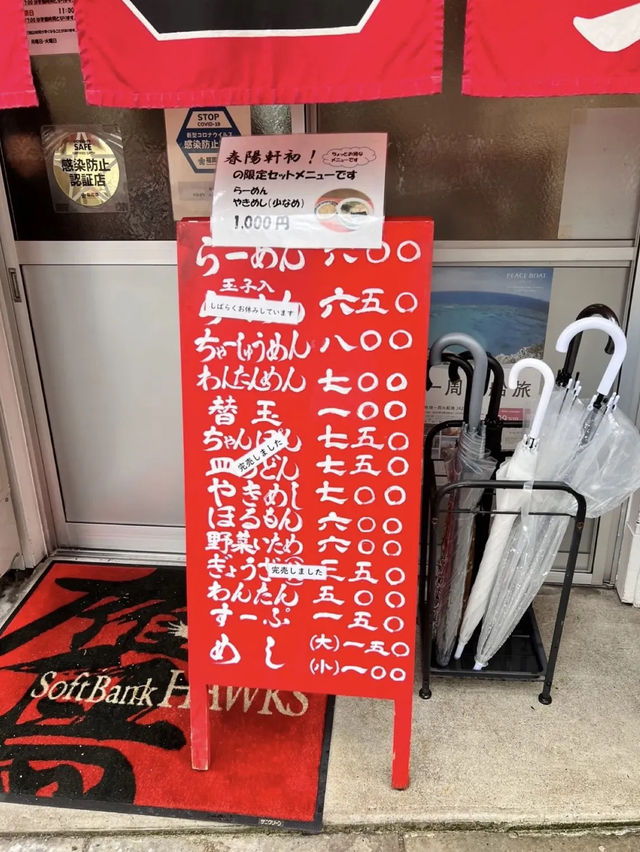 11:00
月曜日・火曜日
SAFE
感染防止
認証店
STOP
COVID-19
新型コロナウイルス
感染防止
春陽軒初！
ちょっとお得な
メニューです
の限定セットメニューです
らーめん
やきめし(少なめ)
1,000円
らーめん 六〇〇
玉子入
しばらくお休みしています 六五〇
ちゃーしゅうめん 八〇〇
わんたんめん 七〇〇
替玉 一〇〇
ちゃんぽん 七五〇
皿うどん 七五〇
完売しました
やきめし 七〇〇
ほるもん 六〇〇
野菜いため 六〇〇
ぎょうざ 三五〇
完売しました
わんたん 五〇〇
すーぷ 一五〇
めし (大)一五〇
(小)一〇〇
PEACE BOAT
旅
鷹
SoftBank HAWKS